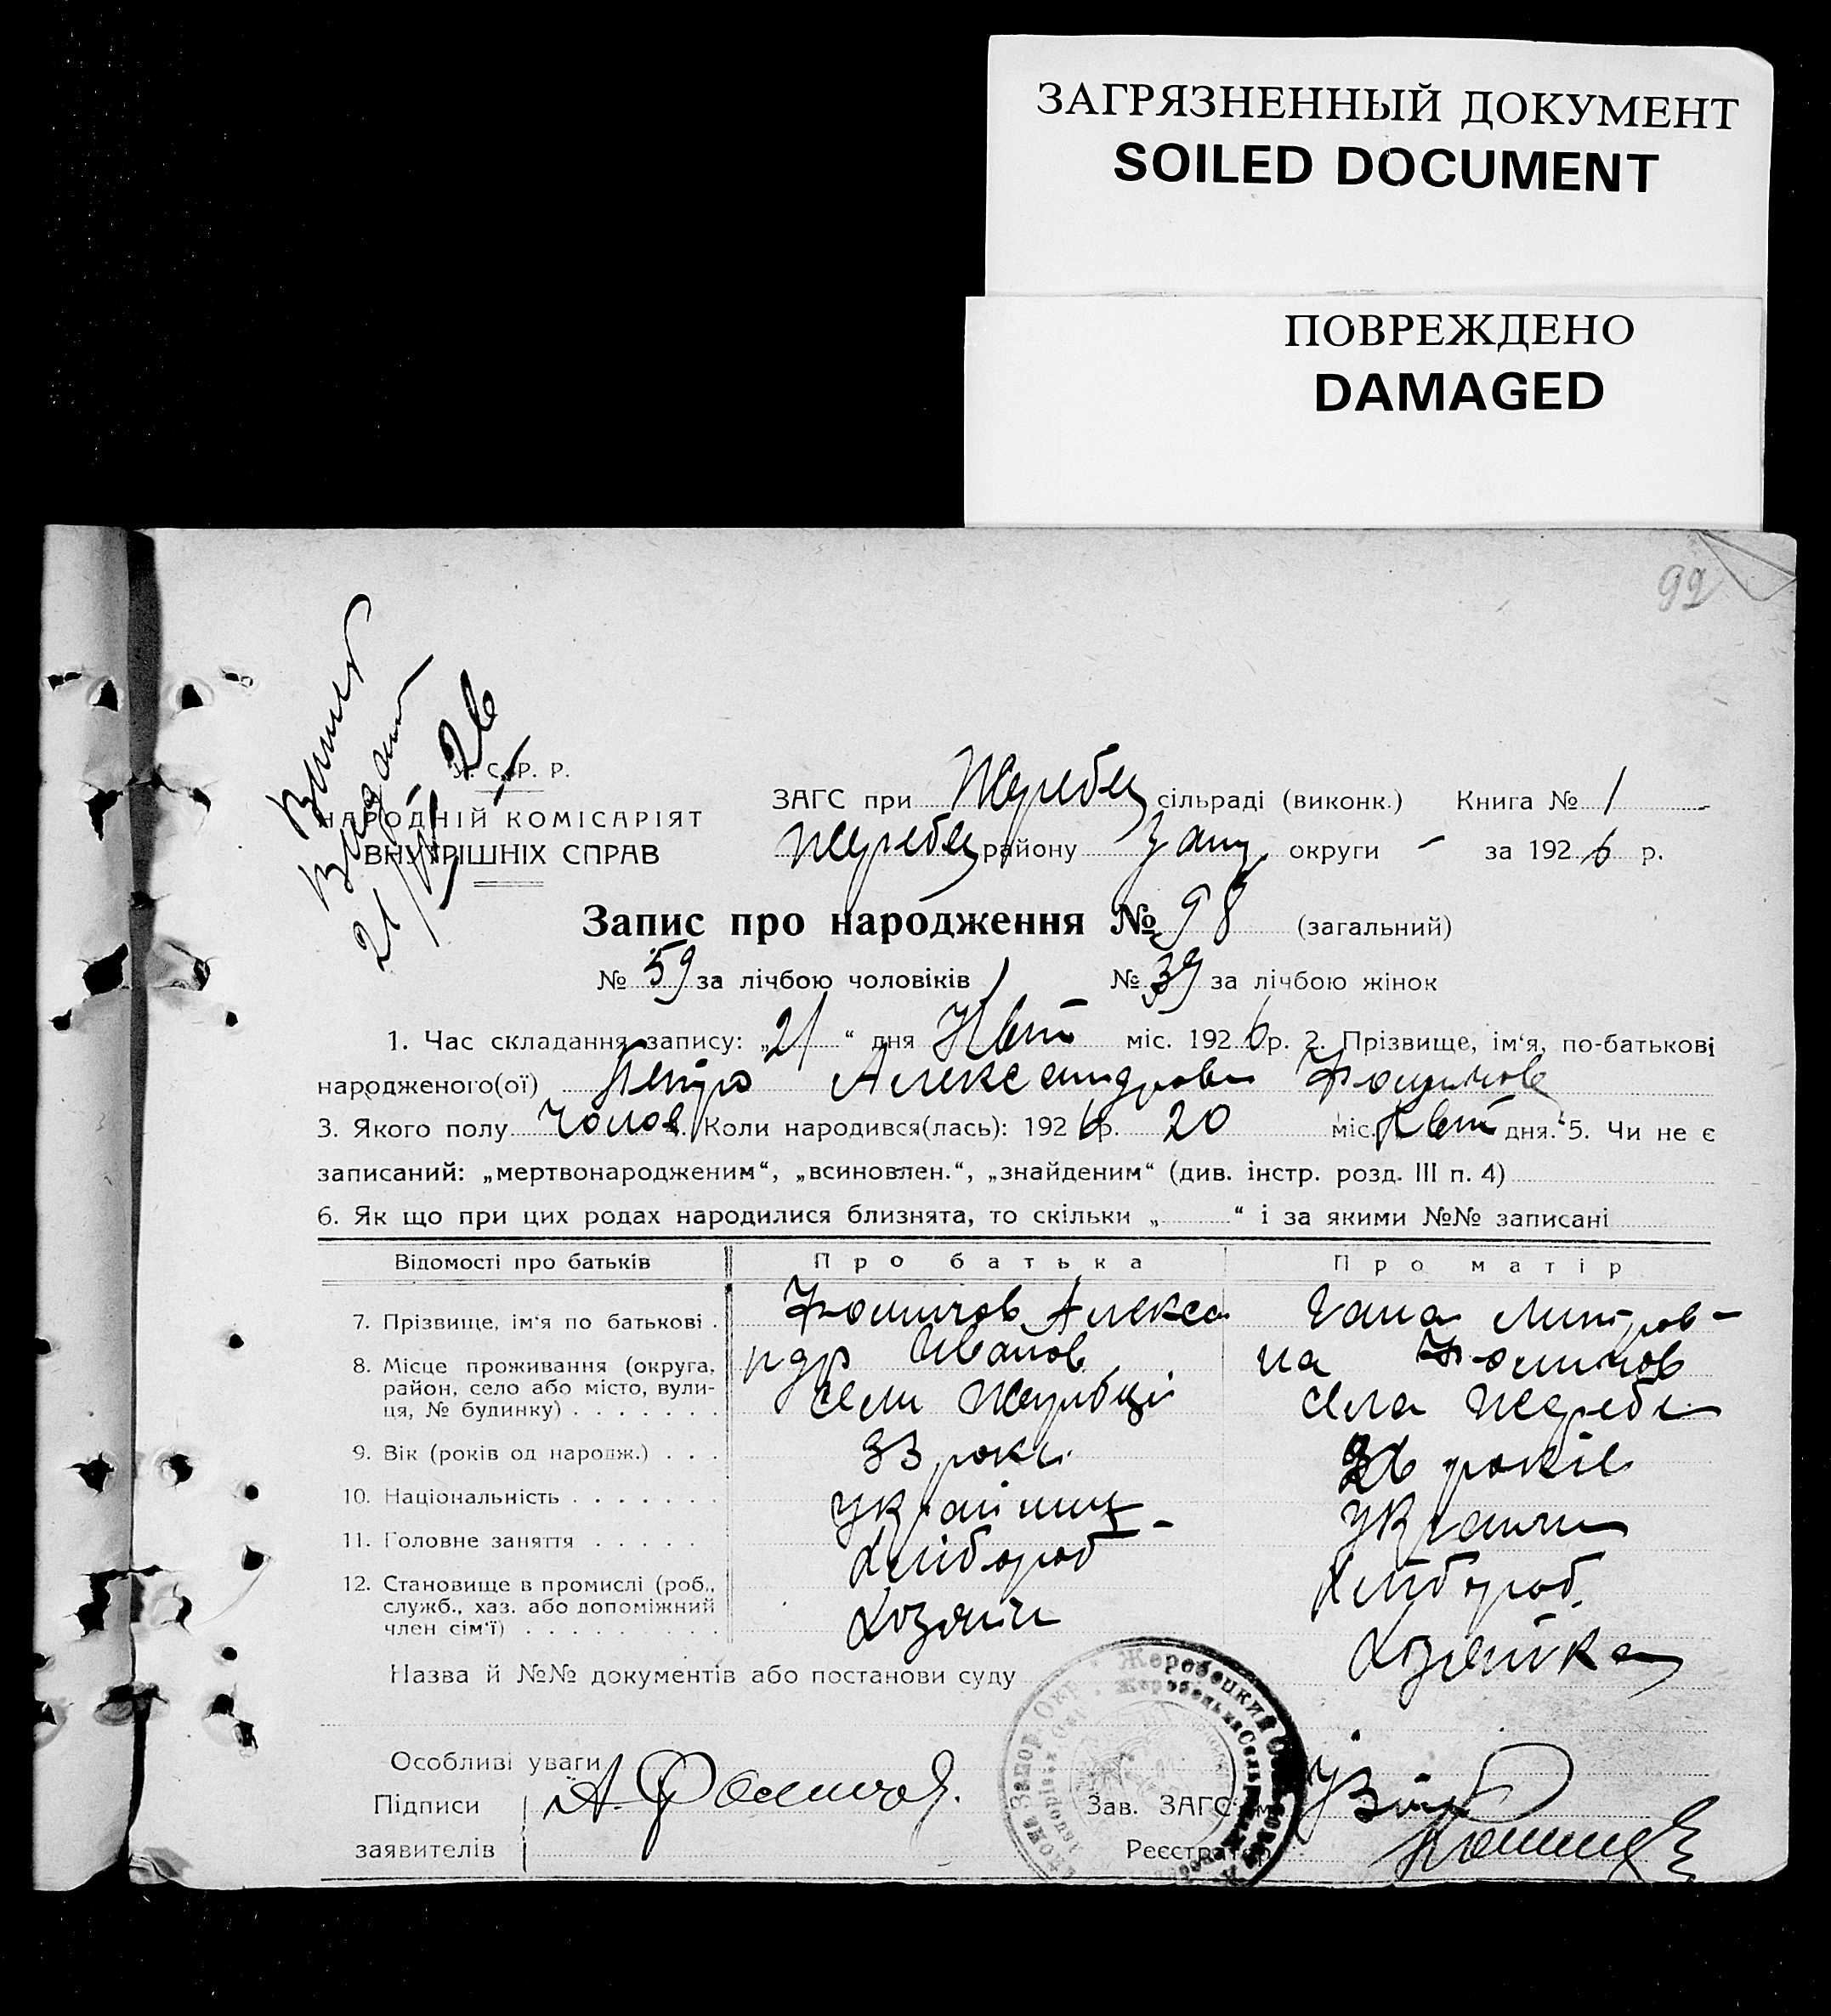 ЗАГРЯЗНЕННЫЙ ДОКУМЕНТ
SOILED DOCUMENT
ПОВРЕЖДЕНО
DAMAGED
99
Виданий
21/IV 26
У. С. Р. Р.
НАРОДНІЙ КОМІСАРІЯТ
ВНУТРІШНІХ СПРАВ
ЗАГС при Жеребец сільраді (виконк.) Книга № 1
Жеребец району Запор округи - за 1926 р.
Запис про народження № 98 (загальний)
№ 59 за лічбою чоловіків № 39 за лічбою жінок
1. Час складання запису: „21“ дня Квіт міс. 1926 р. 2. Прізвище, ім‘я, по-батькові
народженого(ої) Петро Александров Фомичов
3. Якого полу Чолов. Коли народився(лась): 1926 р. 20 міс. Квіт дня. 5. Чи не є
записаний: „мертвонародженим“, „всиновлен.“, „знайденим“ (див. інстр. розд. III п. 4)
6. Як що при цих родах народилися близнята, то скільки „ “ і за якими №№ записані
Відомості про батьків Про батька Про матір
7. Прізвище, ім‘я по батькові . Фомичов Алекса Гана Митров-
8. Місце проживання (округа, ндр Иванов на Фомичов
район, село або місто, вули-
ця, № будинку) . . . . . . . Села Жеребці Села Жереб
9. Вік (років од народж.) . . . 33 роки 36 років
10. Національність . . . . . . . Українец Українк
11. Головне заняття . . . . . Хлібороб Хлібороб
12. Становище в промислі (роб.,
служб., хаз. або допоміжний
член сім‘ї) . . . . . . . . . Хозяин Хозяйка
Назва й №№ документів або постанови суду
Особливі уваги
Підписи
заявителів
А. Фомичов.
Зав. ЗАГС‘ом
Реєстратор